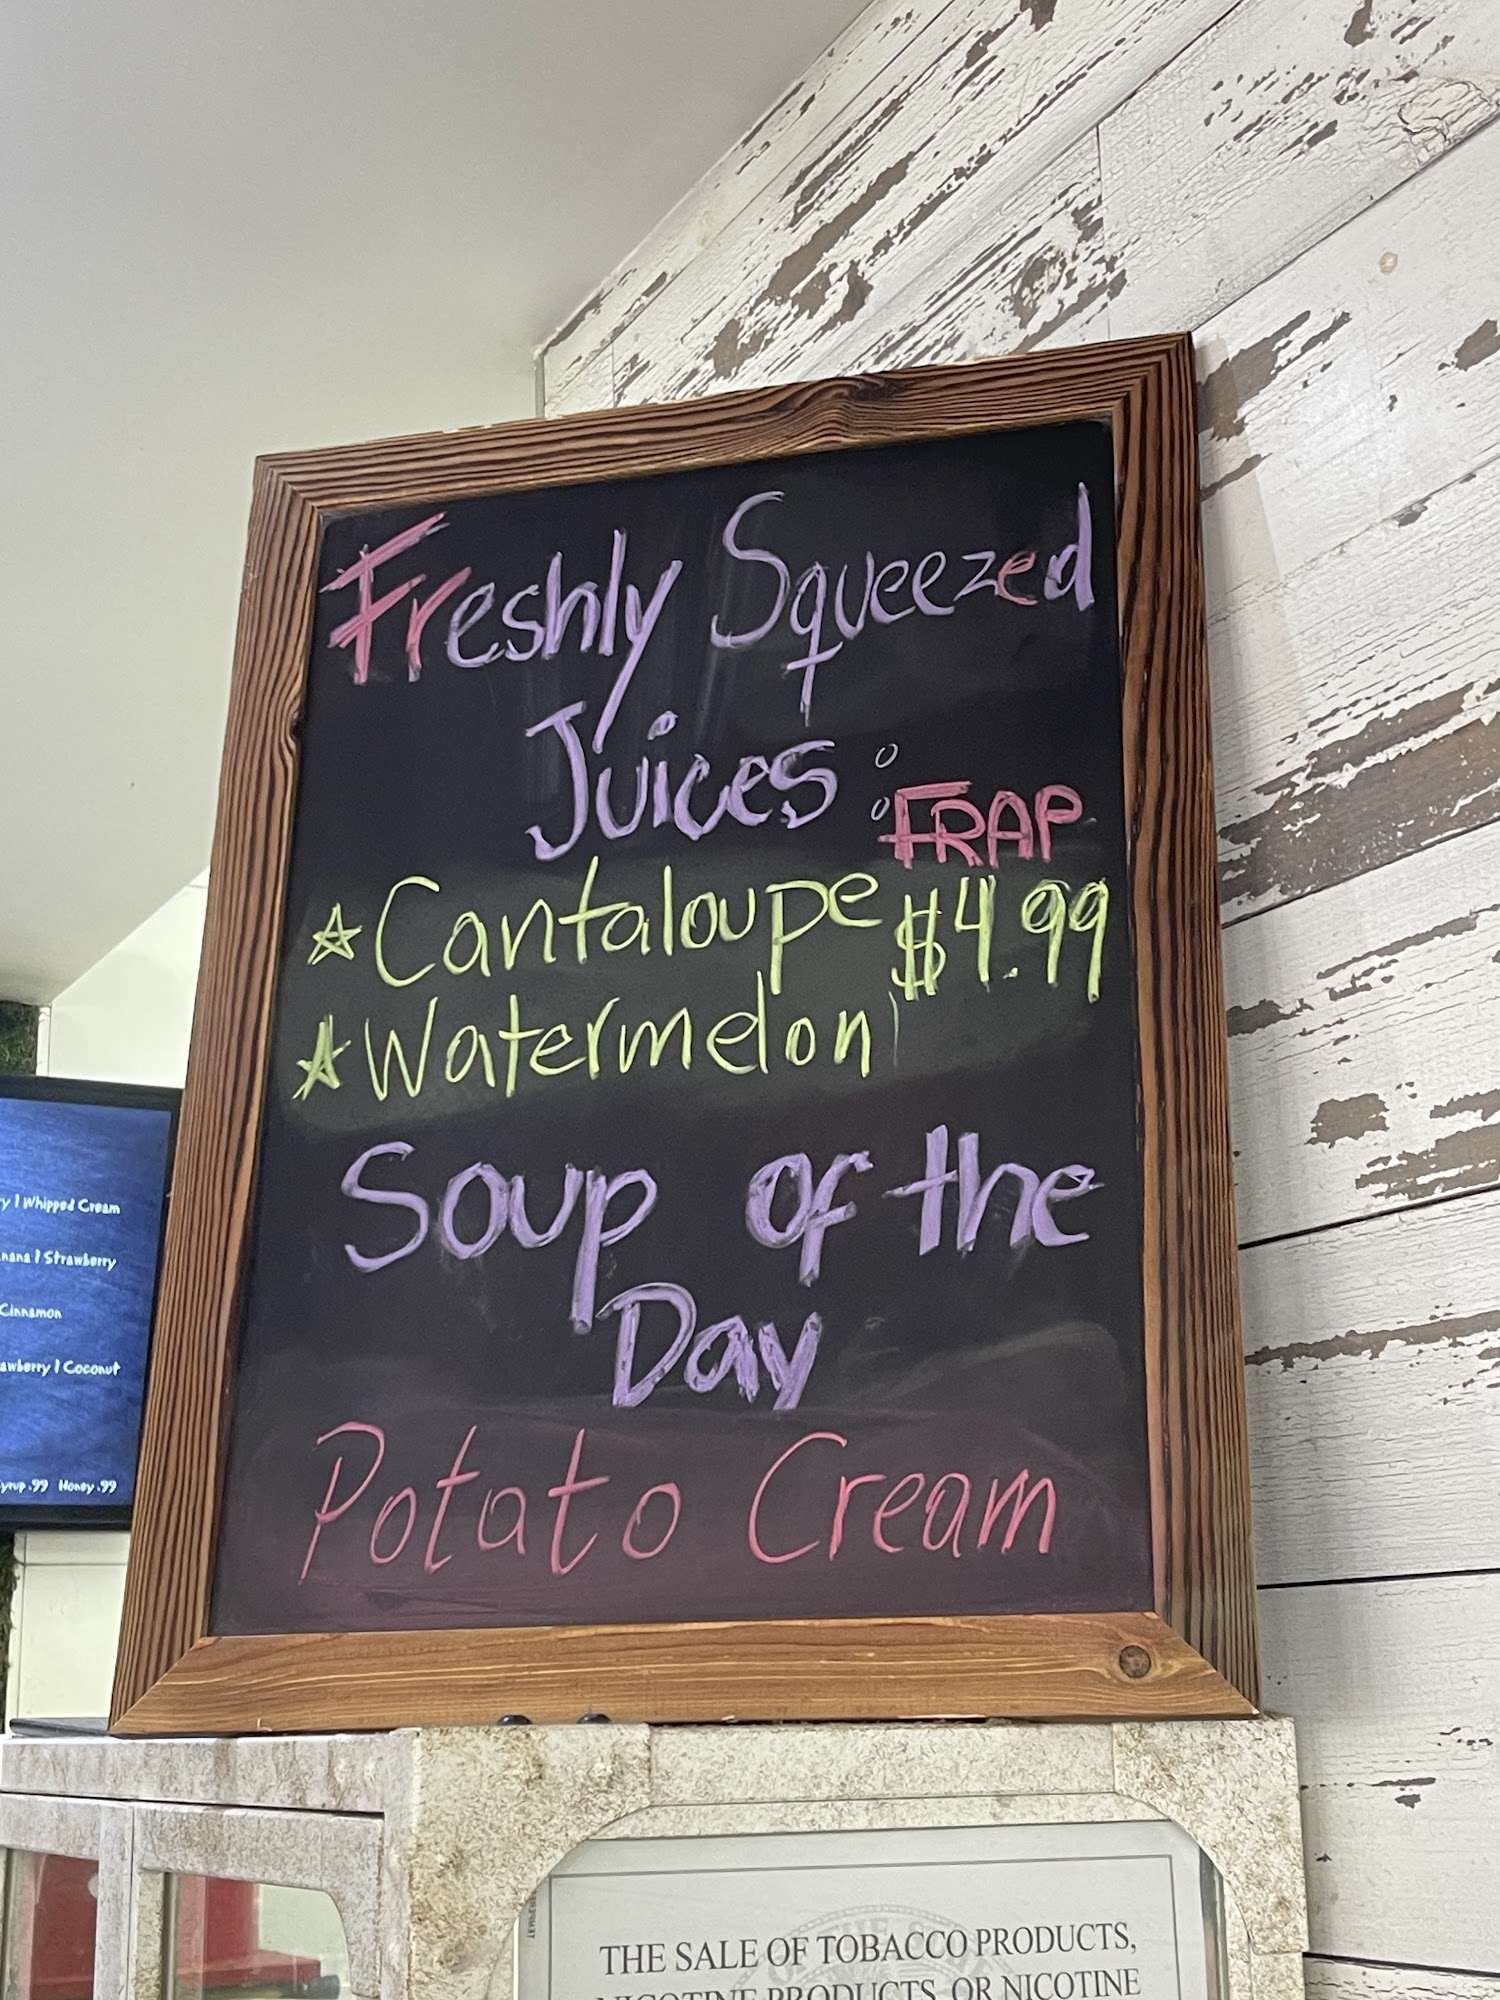 Freshly Squeezed
Juices :
FRAP
☆ Cantaloupe $4.99
☆ Watermelon
Soup of the
Day
Potato Cream
y | Whipped Cream
nana | Strawberry
Cinnamon
awberry | Coconut
yrup .99 Honey .99
THE SALE OF TOBACCO PRODUCTS,
NICOTINE PRODUCTS, OR NICOTINE